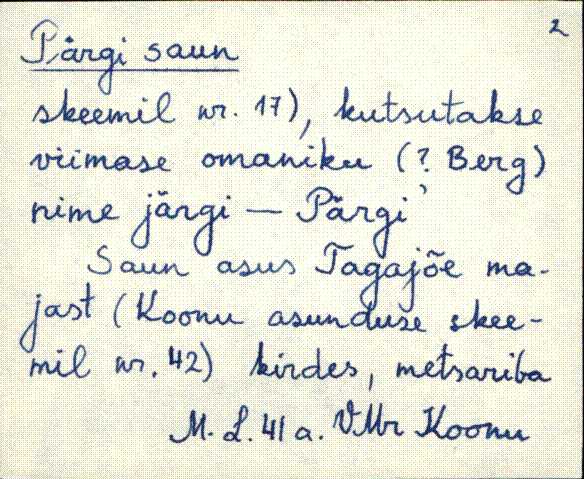 2
Pärgi saun
skeemil nr. 17), kutsutakse
viimase omaniku (? Berg)
nime järgi — Pärgi'
Saun asus Tagajõe ma-
jast (Koonu asunduse skee-
mil nr. 42) kirdes, metsariba
M. L. 41 a. VMr Koonu